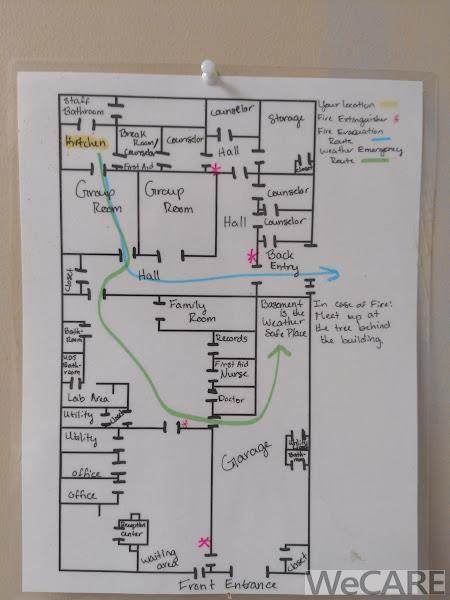 Staff
Bathroom
Kitchen
Break
Room/
Counselor
First Aid
Counselor
Counselor
Hall
Storage
Closet
Your location
Fire Extinguisher *
Fire Evacuation
Route
Weather Emergency
Route
Group
Room
Group
Room
Hall
Counselor
Counselor
Back
Entry
Hall
Closet
Family
Room
Basement
is the
Weather
Safe Place
In case of Fire:
Meet up at
the tree behind
the building.
Bath-
room
UDS
Bath-
room
Records
First Aid
Nurse
Doctor
Lab Area
Utility
Closet
Utility
Garage
Utility
Bath-
room
Office
Office
Reception
Center
Waiting
area
Closet
Front Entrance
WeCARE